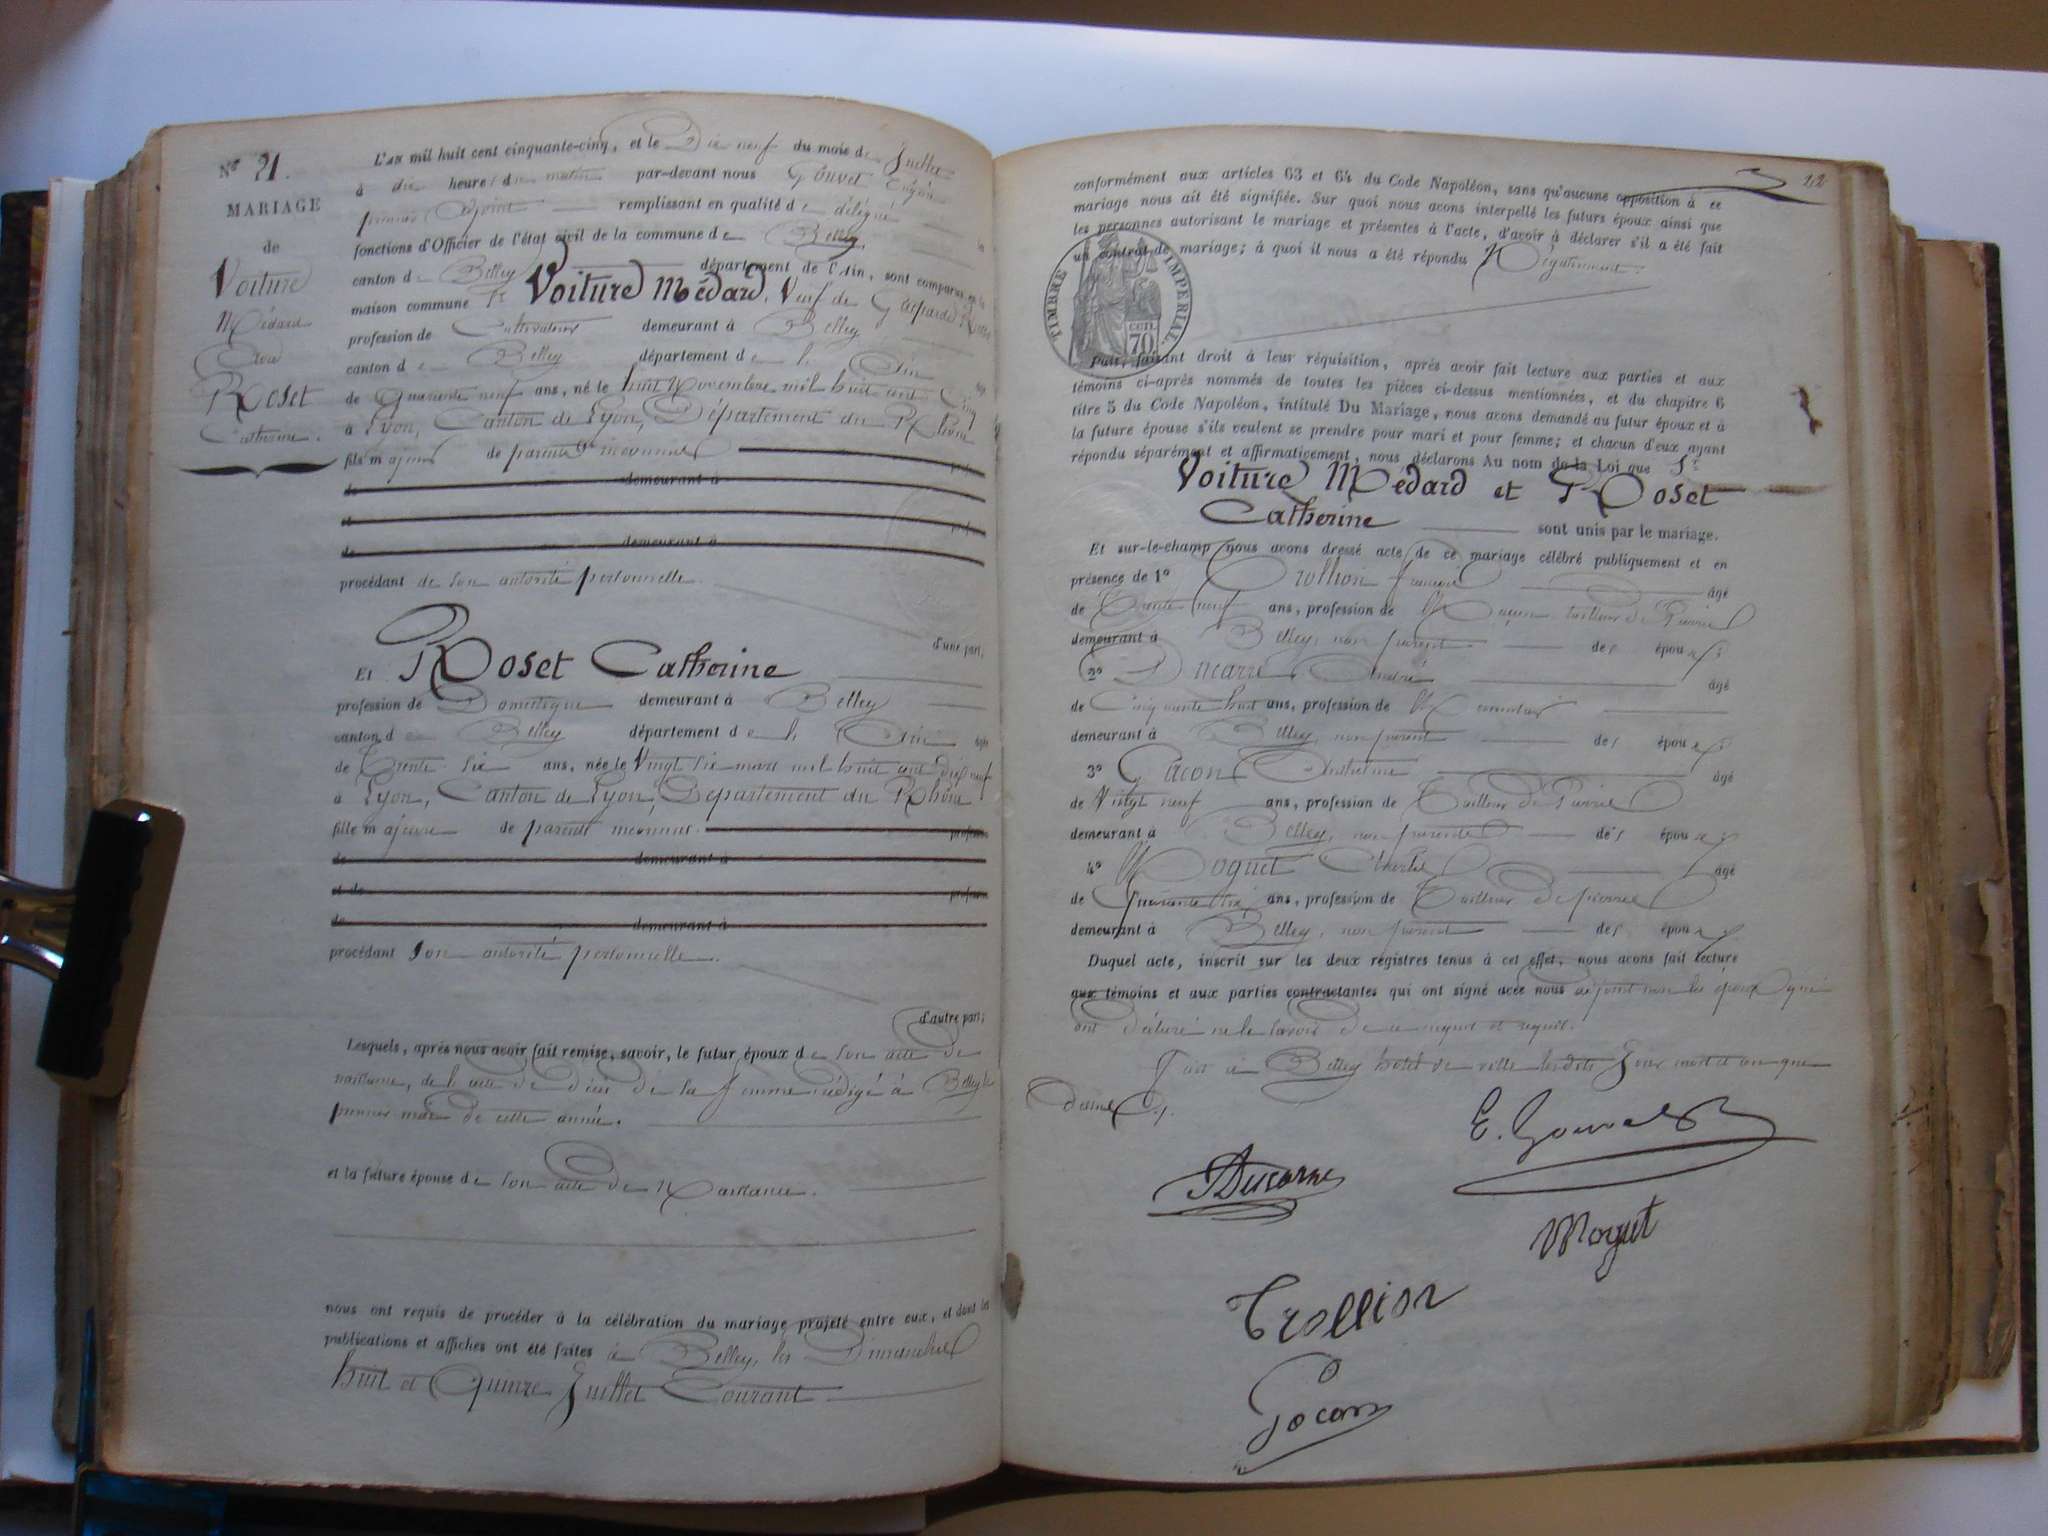 N° 21.
MARIAGE
de
Voiture
Médard
avec
Roset
Catherine.
L'an mil huit cent cinquante-cinq, et le Dix neuf du mois de Juillet
à dix heures du matin par-devant nous Gouvet Eugène
premier Adjoint remplissant en qualité de délégué les
fonctions d'Officier de l'état civil de la commune de Belley,
canton de Belley département de l'Ain, sont comparus en la
maison commune Sr Voiture Médard, Veuf de Gaspard
profession de Cultivateur demeurant à Belley
canton de Belley département de l'Ain âgé
de Quarante neuf ans, né le huit Novembre mil huit cent Cinq
à Lyon, Canton de Lyon, Département du Rhône
fils majeur de parents inconnus
de demeurant à
et
de demeurant à
procédant de son autorité personnelle.
d'une part;
Et Roset Catherine
profession de Domestique demeurant à Belley
canton de Belley département de l'Ain âgée
de Trente-six ans, née le Vingt six mars mil huit cent dix neuf
à Lyon, Canton de Lyon, Département du Rhône
fille majeure de parents inconnus. profession
de demeurant à
et de profession
de demeurant à
procédant son autorité personnelle.
d'autre part;
Lesquels, après nous avoir fait remise, savoir, le futur époux de son acte de
naissance, de l'acte de décès de sa femme rédigé à Belley le
premier mai de cette année.
et la future épouse de son acte de Naissance.
nous ont requis de procéder à la célébration du mariage projeté entre eux, et dont les
publications et affiches ont été faites à Belley, les Dimanches
huit et Quinze Juillet Courant
22
conformément aux articles 63 et 64 du Code Napoléon, sans qu'aucune opposition à ce
mariage nous ait été signifiée. Sur quoi nous avons interpellé les futurs époux ainsi que
les personnes autorisant le mariage et présentes à l'acte, d'avoir à déclarer s'il a été fait
un contrat de mariage; à quoi il nous a été répondu Négativement.
TIMBRE IMPERIAL
CENT. 70
Puis, faisant droit à leur réquisition, après avoir fait lecture aux parties et aux
témoins ci-après nommés de toutes les pièces ci-dessus mentionnées, et du chapitre 6
titre 5 du Code Napoléon, intitulé Du Mariage, nous avons demandé au futur époux et à
la future épouse s'ils veulent se prendre pour mari et pour femme; et chacun d'eux ayant
répondu séparément et affirmativement, nous déclarons Au nom de la Loi que Sr
Voiture Médard et Roset
Catherine sont unis par le mariage.
Et sur-le-champ nous avons dressé acte de ce mariage célébré publiquement et en
présence de 1° Trollion François âgé
de Trente neuf ans, profession de Maçon tailleur de Pierre
demeurant à Belley, non parent des époux;
2° Ducarre André âgé
de Cinquante huit ans, profession de Menuisier
demeurant à Belley, non parent des époux;
3° Gacon Anthelme âgé
de Vingt neuf ans, profession de Tailleur de Pierre
demeurant à Belley, non parent des époux;
4° Moquet Charles âgé
de Quarante six ans, profession de Tailleur de pierre
demeurant à Belley, non parent des époux
Duquel acte, inscrit sur les deux registres tenus à cet effet, nous avons fait lecture
aux témoins et aux parties contractantes qui ont signé avec nous adjoint non les époux qui
ont déclaré ne le savoir de ce enquis et requis.
Fait à Belley hôtel de ville lesdits Jour mois et an que
dessus
E. Gouvet
Ducarre
Moquet
Trollion
Gacon